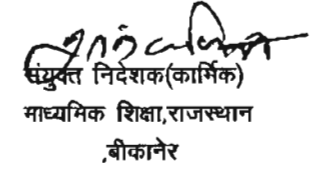 संयुक्त निदेशक(कार्मिक)
माध्यमिक शिक्षा,राजस्थान
,बीकानेर